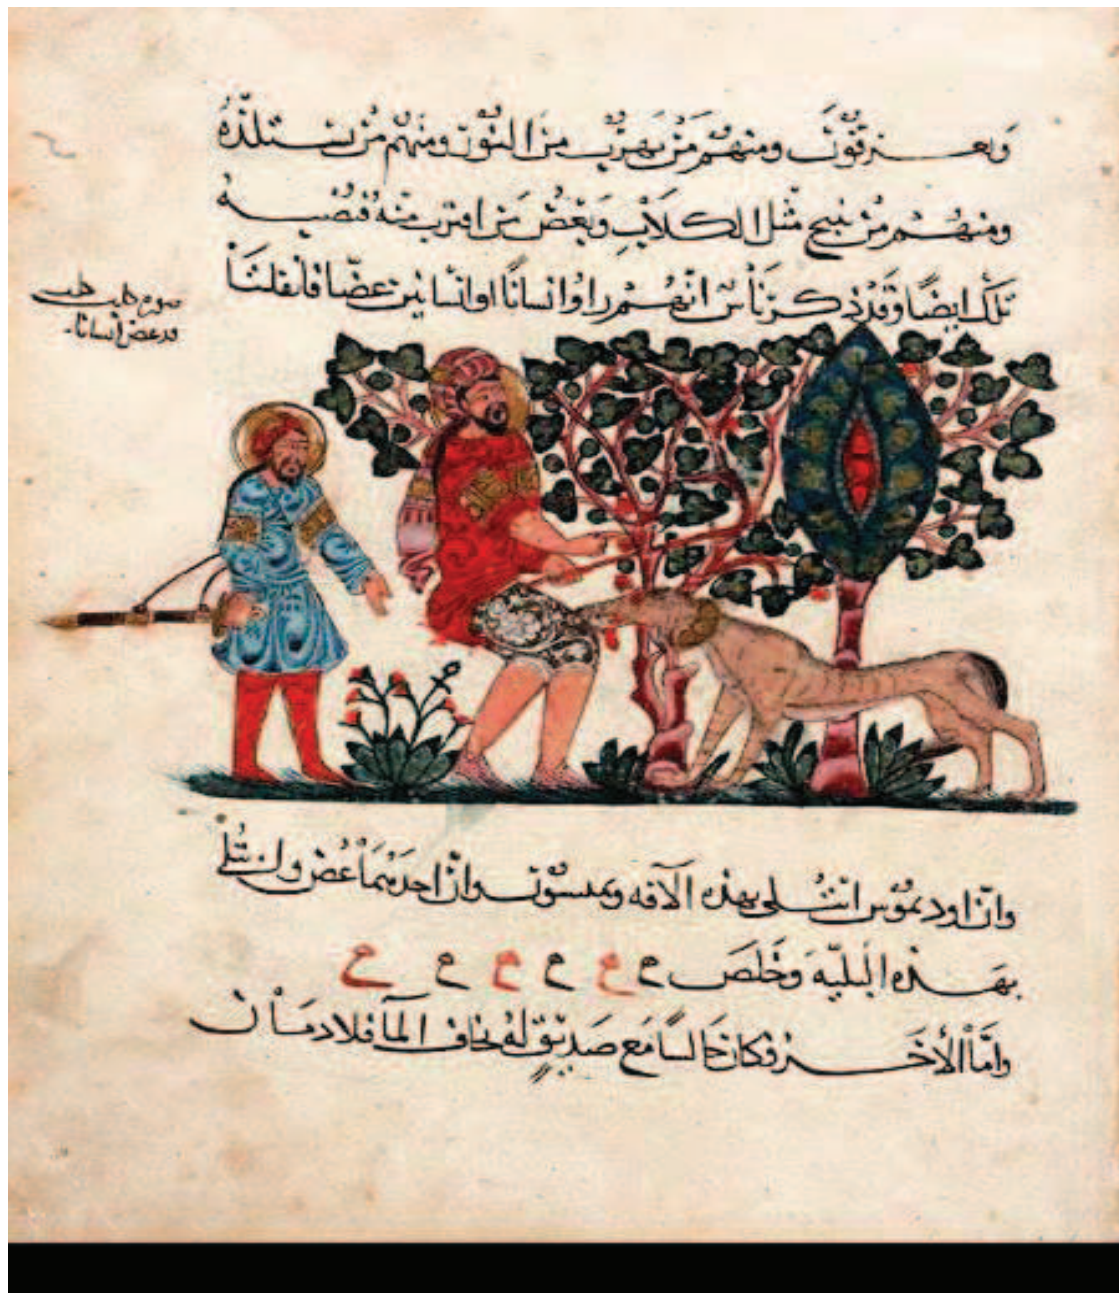 ويعرقون ومنهم من يهرب من النور ومنهم من يستلذه
ومنهم من ينبح مثل الكلاب ويعض من اقترب منه فيصيبه
تلك ايضًا وقد ذكر ناس انهم راوا انسانًا او انسانين عضّا فانفلتا
صورة كلب كلب
قد عض انسانا
وان اوديموس ابتلى بهذه الآفه وان احدهما عض وابتلى
بهذه البليّه وخلص
وامّا الأخر فكان جالسًا مع صديق له يخاف المآ فلا دمان